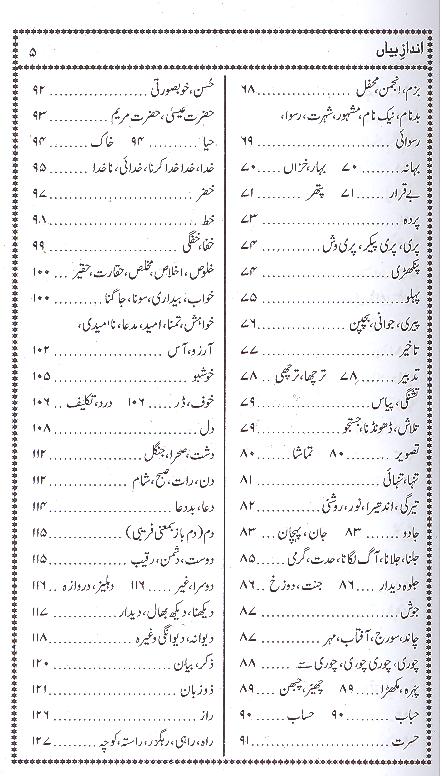 اندازِ بیاں ۵
بزم، انجمن، محفل ........ ۶۸
بدنام، نیک نام، مشہور، شہرت، رسوا،
رسوائی ........ ۶۹
بہانہ ........ ۷۰ بہار، خزاں ........ ۷۰
بے قرار ........ ۷۱ پتھر ........ ۷۱
پردہ ........ ۷۳
پری، پری پیکر، پری وش ........ ۷۴
پنکھڑی ........ ۷۴
پہلو ........ ۷۵
پیری، جوانی، بچپن ........ ۷۶
تاخیر ........ ۷۷
تدبیر ........ ۷۸ ترچھا، ترچھی ........ ۷۸
تشنگی، پیاس ........ ۷۹
تلاش، ڈھونڈنا، جستجو ........ ۷۹
تصویر ........ ۸۰ تماشا ........ ۸۰
تنہا، تنہائی ........ ۸۱
تیرگی، اندھیرا، نور، روشنی ........ ۸۲
جادو ........ ۸۳ جان، پہچان ........ ۸۳
جلنا، جلانا، آگ لگانا، حدت، گرمی ........ ۸۵
جلوہ دیدار ........ ۸۶ جنت، دوزخ ........ ۸۶
جوش ........ ۸۷
چاند، سورج، آفتاب، مہر ........ ۸۷
چوری، چوری چوری، چوری سے ........ ۸۸
چہرہ، مکھڑا ........ ۸۹ چھیڑ، چبھن ........ ۸۹
حباب ........ ۹۰ حساب ........ ۹۰
حسرت ........ ۹۱
حُسن، خوبصورتی ........ ۹۲
حضرت عیسیٰ، حضرت مریم ........ ۹۳
حیا ........ ۹۴ خاک ........ ۹۴
خدا، خدا خدا کرنا، خدائی، ناخدا ........ ۹۵
خضر ........ ۹۷
خط ........ ۹۸
خفا، خفگی ........ ۹۹
خلوص، اخلاص، مخلص، حقارت، حقیر ........ ۱۰۰
خواب، بیداری، سونا، جاگنا ........ ۱۰۰
خواہش، تمنا، امید، مدعا، ناامیدی،
آرزو، آس ........ ۱۰۲
خوشبو ........ ۱۰۵
خوف، ڈر ........ ۱۰۶ درد، تکلیف ........ ۱۰۶
دل ........ ۱۰۸
دشت، صحرا، جنگل ........ ۱۱۲
دن، رات، صبح، شام ........ ۱۱۲
دعا، بددعا ........ ۱۱۴
دم (دم باز بمعنی فریبی) ........ ۱۱۵
دوست، دشمن، رقیب ........ ۱۱۵
دوسرا، غیر ........ ۱۱۶ دہلیز، دروازہ ........ ۱۱۶
دیکھنا، دیکھ بھال، دیدار ........ ۱۱۷
دیوانہ، دیوانگی وغیرہ ........ ۱۱۸
ذکر، بیان ........ ۱۲۰
ذو زبان ........ ۱۲۱
راز ........ ۱۲۶
راہ، راہی، رہگزر، راستہ، کوچہ ........ ۱۲۷